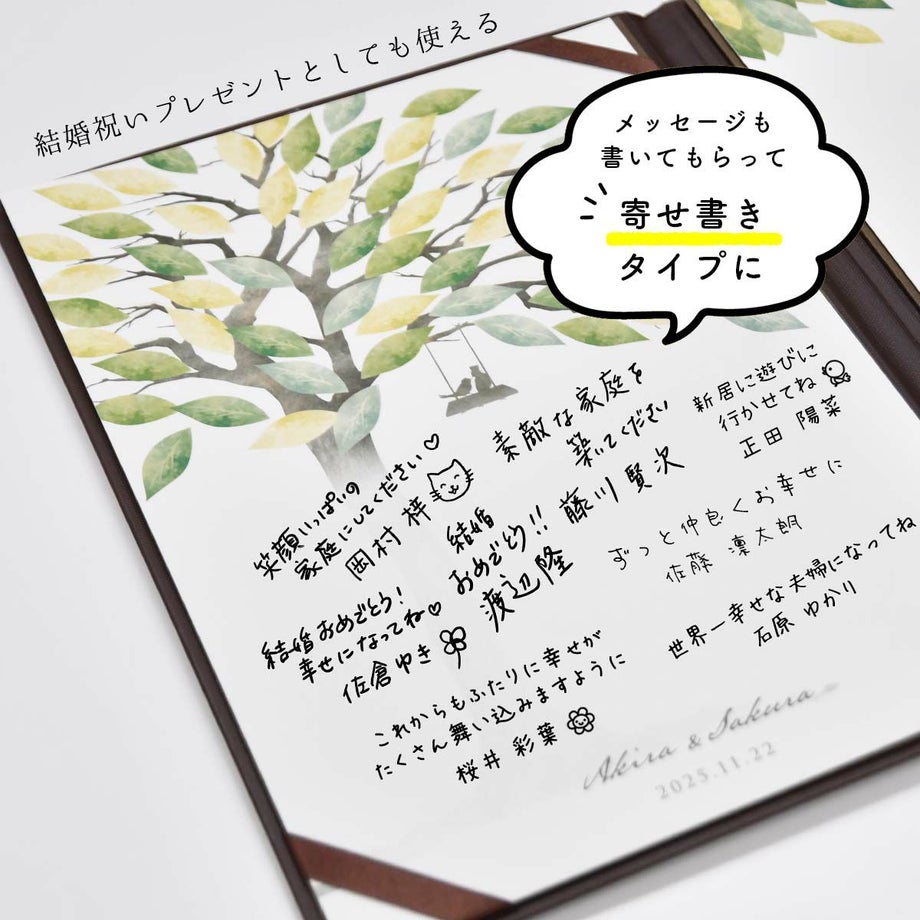 結婚祝いプレゼントとしても使える
メッセージも
書いてもらって
寄せ書き
タイプに
笑顔いっぱいの
家庭にしてください♡
岡村 梓
素敵な家庭を
築いてください
藤川 賢次
新居に遊びに
行かせてね
正田 陽菜
結婚
おめでとう!!
渡辺 隆
ずっと仲良くお幸せに
佐藤 凛太朗
結婚おめでとう!
幸せになってね♡
佐倉 ゆき
世界一幸せな夫婦になってね
石原 ゆかり
これからもふたりに幸せが
たくさん舞い込みますように
桜井 彩葉
Akira & Sakura
2025.11.22